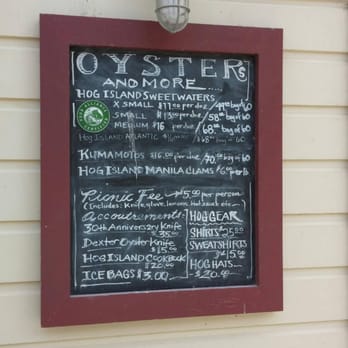 OYSTERS
AND MORE.....
HOG ISLAND SWEETWATERS
X SMALL $11.00 per doz / bag of 60
SMALL $13.50 per doz / 58.00 bag of 60
MEDIUM $16 per doz / 68.00 bag of 60
HOG ISLAND ATLANTIC
KUMAMOTOS $16.00 per doz / 70.00 bag of 60
HOG ISLAND MANILA CLAMS
Picnic Fee $5.00 per person
(Includes: Knife, glove, lemons, Hot sauce etc...)
Accoutrements:
30th Anniversary Knife
$35.00
Dexter Oyster Knife
$15.00
HOG ISLAND COOKBOOK
$20.00
ICE BAGS $3.00
HOG GEAR
SHIRTS $25.00
SWEATSHIRTS
HOG HATS
$20.00